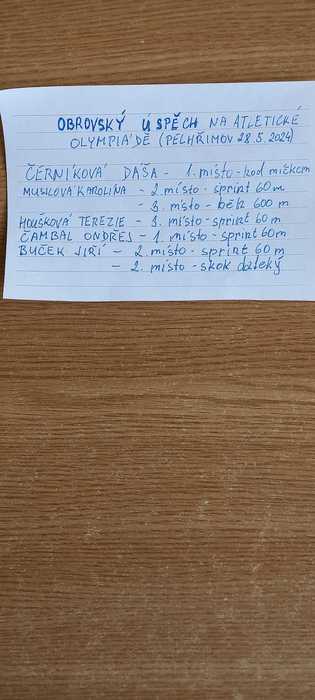 OBROVSKÝ ÚSPĚCH NA ATLETICKÉ
OLYMPIÁDĚ (PELHŘIMOV 28.5.2024)
ČERNÍKOVÁ DÁŠA - 1. místo - hod míčkem
MUSILOVÁ KAROLÍNA - 2. místo - sprint 60 m
- 3. místo - běh 600 m
HOUŠKOVÁ TEREZIE - 3. místo - sprint 60 m
ČAMBAL ONDŘEJ - 1. místo - sprint 60 m
BUČEK JIŘÍ - 2. místo - sprint 60 m
- 2. místo - skok daleký